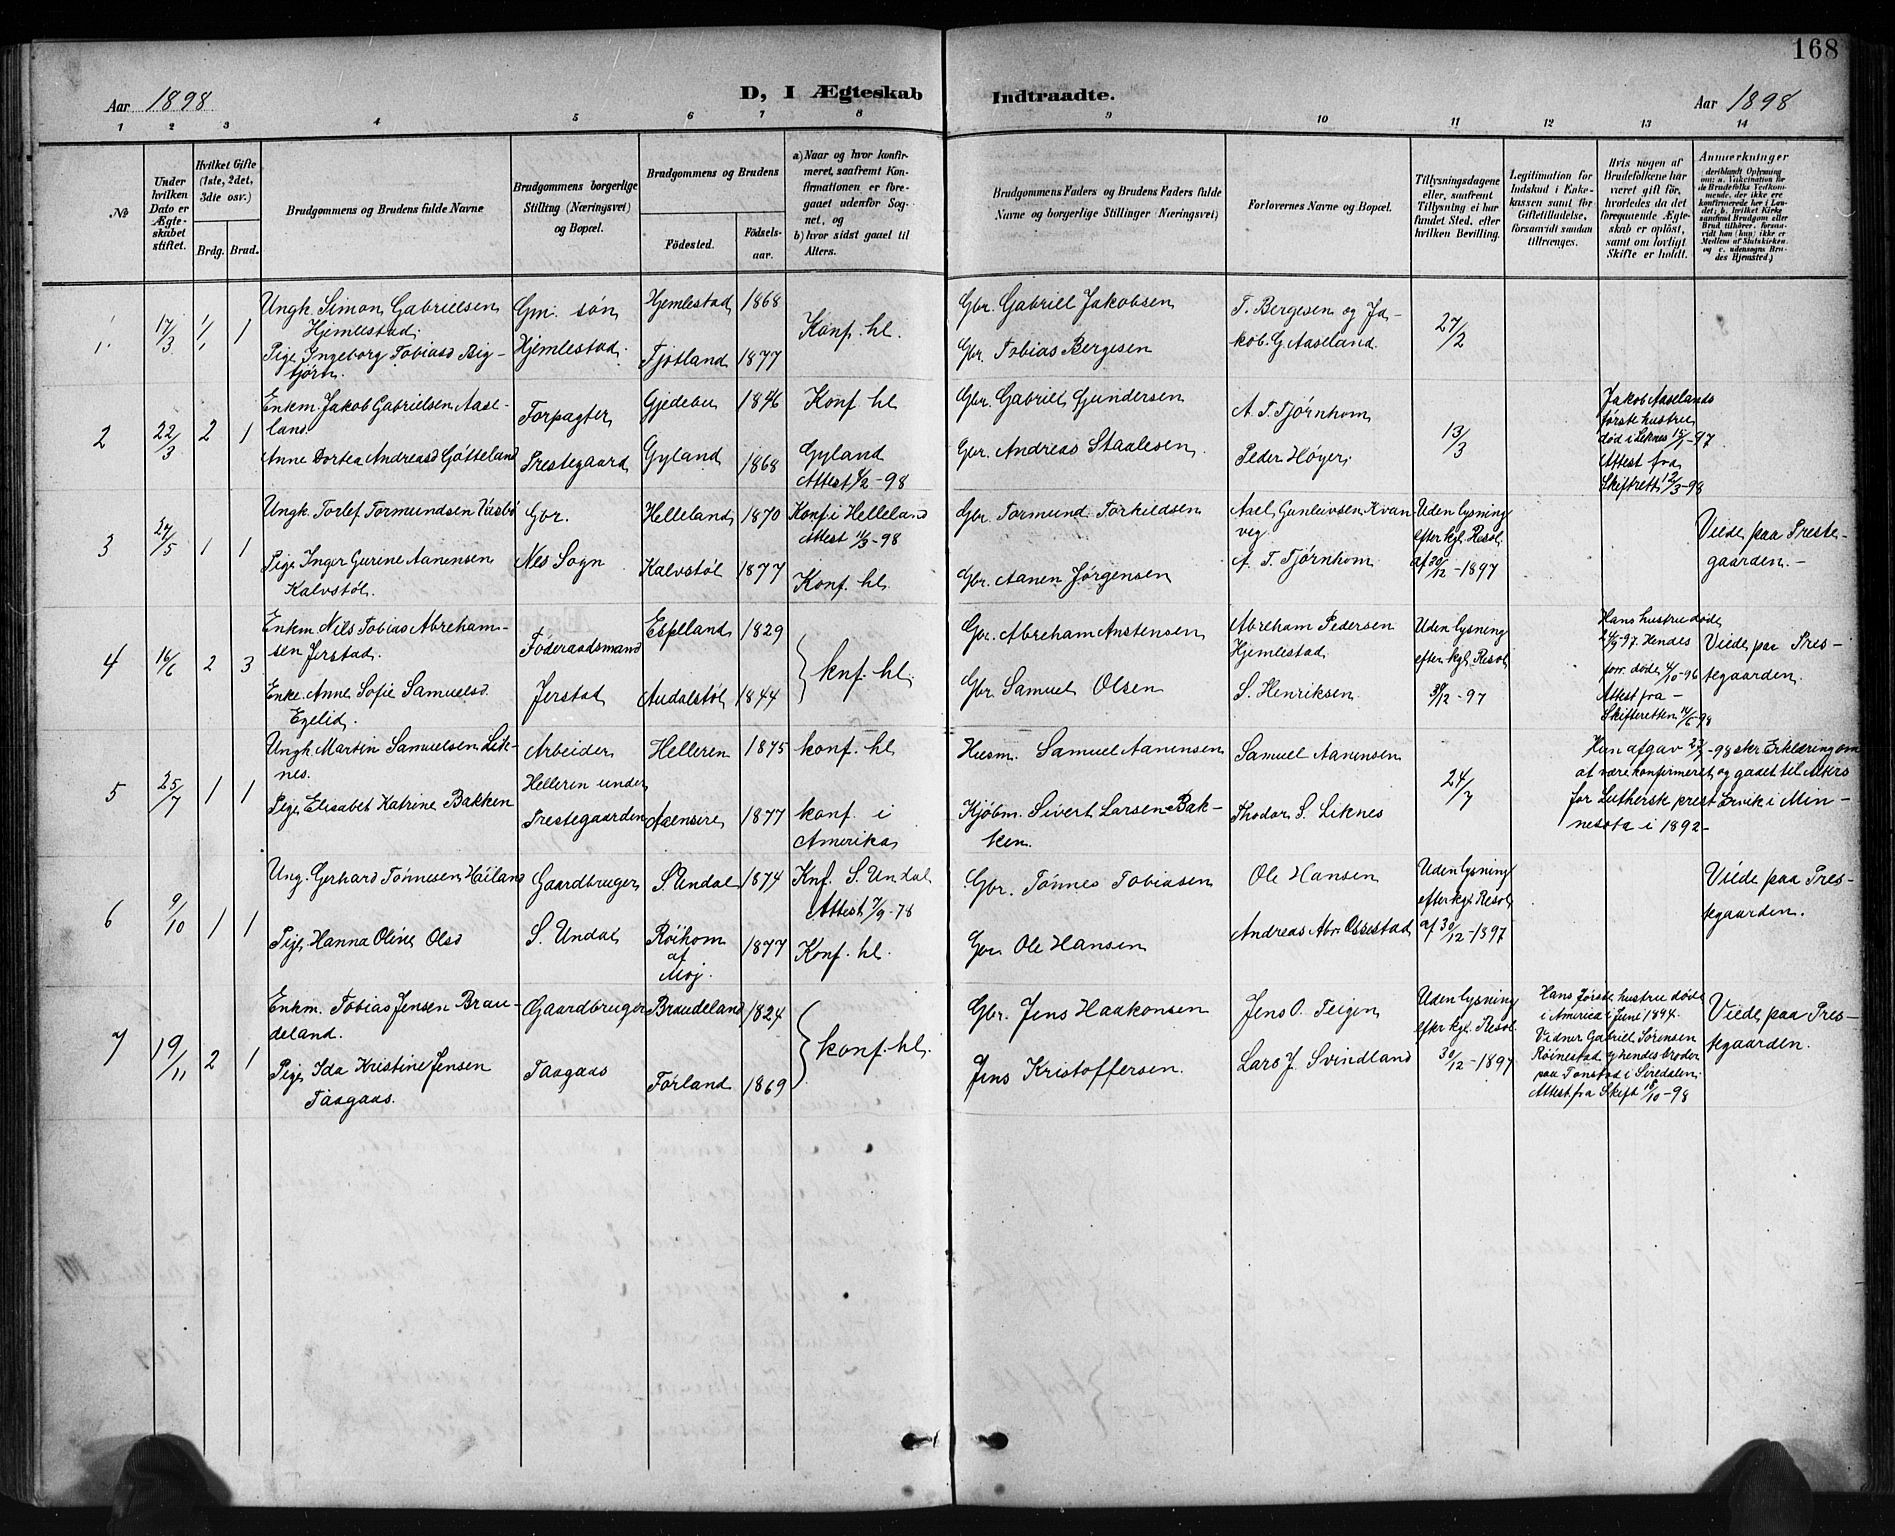 168
Aar 1898
D, I Ægteskab Indtraadte.
Aar 1898
1 2 3 4 5 6 7 8 9 10 11 12 13 14
No
Under hvilken Dato er Ægteskabet stiftet.
Hvilket Gifte (1ste, 2det, 3die osv.)
Brdg. Brud.
Brudgommens og Brudens fulde Navne
Brudgommens borgerlige Stilling (Næringsvei) og Bopæl.
Brudgommens og Brudens
Födested.
Födselsaar.
a) Naar og hvor konfirmeret, saafremt Konfirmationen er foregaaet udenfor Sognet, og
b) hvor sidst gaaet til Alters.
Brudgommens Faders og Brudens Faders fulde Navne og borgerlige Stillinger (Næringsvei)
Forlovernes Navne og Bopæl.
Tillysningsdagene eller, saafremt Tillysning ei har fundet Sted, efter hvilken Bevilling.
Legitimation for Indskud i Enkekassen samt for Giftetilladelse, forsaavidt saadan tiltrænges.
Hvis nogen af Brudefolkene har været gift før, hvorledes da det foregaaende Ægteskab er oplöst, samt om lovligt Skifte er holdt.
Anmerkninger
1. 17/3 1/1 1
Ungk. Simon Gabrielsen
Hjemlestad.
Gm. søn
Hjemlestad.
Hjemlestad 1868
Pige Ingeborg Tobiasd
Fjotland 1877
Konf. hl.
Gbr. Gabriell Jakobsen
Gbr. Tobias Bergesen
T. Bergesen og Ja-
kob. G. Aaseland.
27/2
2 22/3 2 1
Enkm. Jakob Gabrielsen Aase-
land.
Anne Dortea Andreasd Götteland
Forpagter
Prestegaard
Gjedebu 1846
Gyland 1868
Konf. hl
Gyland
Gbr. Gabriell Gundersen
Gbr. Andreas Staalesen.
A. T. Tjørnhom
Peder Høyer.
13/3
Jakob Aaselands
første hustru
død i Liknes 15/1-97
Attest fra
Skifteret 12/3-98
3 27/5 1 1
Ungk. Torlef Tormundsen
Pige Inger Gurine Aanensen
Kalvstøl.
Gbr.
Nes Sogn
Helleland 1870
Kalvstøl 1877
Konf. i Helleland
Attest 11/3-98
Konf. hl.
Gbr. Tormund Torkildsen
Gbr. Aanen Jørgensen
Axel Gunleivsen Kvan-
vig
A. T. Tjørnhom
Uden lysning
efter kgl. Resol.
af 30/12-1897
Viede paa Preste-
gaarden.-
4 16/6 2 3
Enkm. Nils Tobias Abreham-
sen Jerstad.
Enke Anne Sofie Samuelsd.
Egelid.
Föderaadsmand
Jerstad
Espeland 1829
Audalstöl 1844
knf. hl.
Gbr. Abreham Anstensen
Gbr Samuel Olsen
Abreham Pedersen
Hjemlestad
S. Henriksen.
Uden lysning
efter kgl. Resol
30/12-97
Hans hustru døde
-97. Hendes
forr. døde 4/10-96
Attest fra-
Skifteretten 14/6-98
Viede paa Pres-
tegaarden.
5 25/7 1 1
Ungk. Martin Samuelsen Lide-
nes.
Pige Elisabet Katrine Bakken
Arbeider
Helleren under
Prestegaarden
Helleren 1875
Aaensire 1877
konf. hl
konf. i
Amerika
Husm. Samuel Aanensen
Kjøbm. Sivert Larsen Bak-
ken.
Samuel Aanensen
Thodor S. Liknes
24/7
Hun afgav 23/7-98 skr Erklæring om
at være konfirmeret og gaaet til Alters
for Luthersk prest Ervik i Min-
nesota i 1892-
6 9/10 1 1
Ung. Gerhard Tönnesen Höiland
Pige Hanna Oline Olsd
Gaardbruger
S. Undal
S. Undal 1874
Röihom
af
Moj. 1877
Knf. S. Undal
Attest 7/9-78
Konf. hl.
Gbr. Tönnes Tobiasen
Gbr Ole Hansen
Ole Hansen
Andreas Abr. Ossestad
Uden lysning
efter kgl. Resol
af 30/12-1897
Viede paa Pres-
tegaarden.
7 19/11 2 1
Enkm. Tobias Jensen Brau-
deland.
Pige Ida Kristine Jensen
Taagaas.
Gaardbruger
Taagaas
Braudeland 1824
Førland 1869
konf. hl.
Gbr. Jens Haakonsen
Jens Kristoffersen.
Jens O. Teigen
Lars J. Svindland
Uden lysning
efter kgl. Resol.
30/12-1897
Hans første hustru døde
i America i Juni 1894.
Vidner Gabriel Sørensen
Röinestad og hendes broder
paa Tonstad i Siredalen.
Attest fra Skift 18/10-98
Viede paa Pres-
tegaarden.